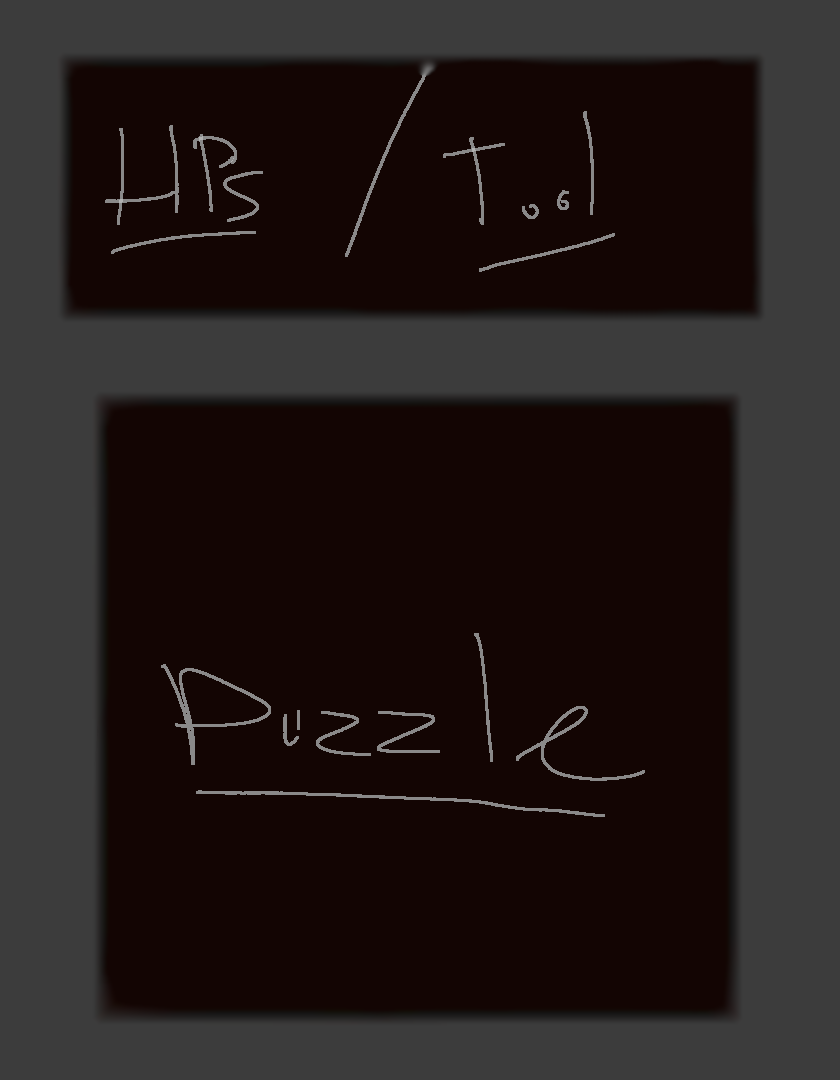 HPs / Tool
Puzzle